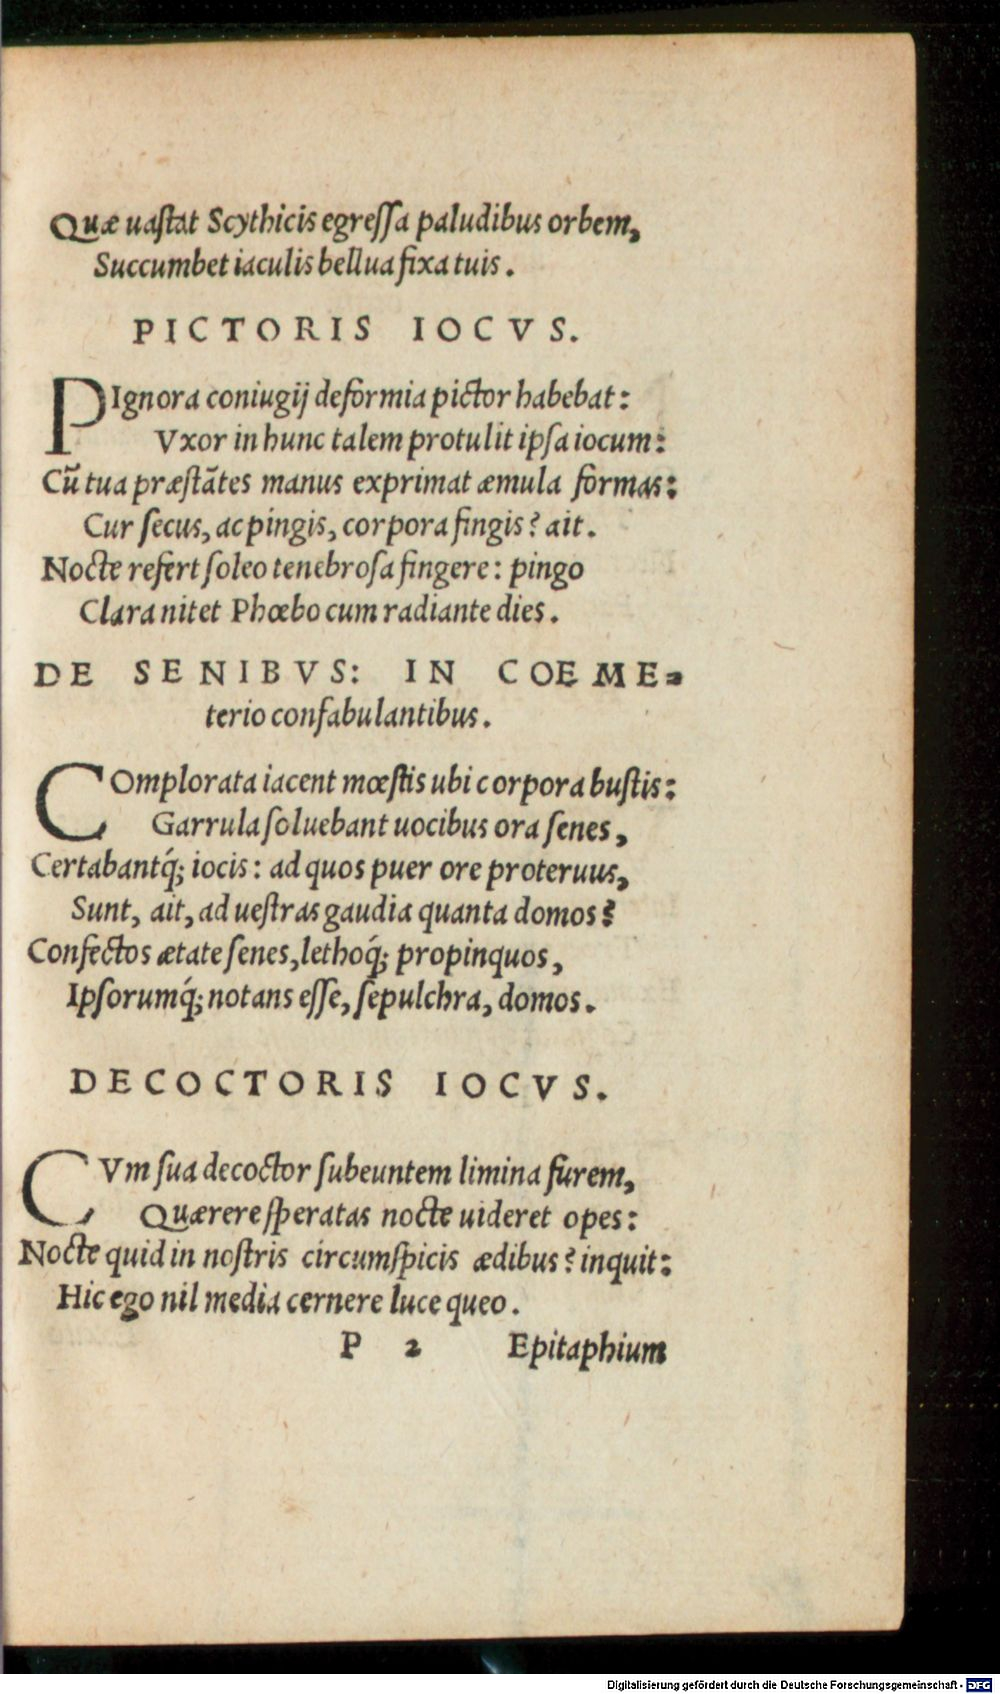 Quæ uaſtat Scythicis egreſſa paludibus orbem,
Succumbet iaculis bellua fixa tuis.
PICTORIS IOCVS.
PIgnora coniugij deformia pictor habebat:
Vxor in hunc talem protulit ipſa iocum:
Cū tua præſtātes manus exprimat æmula formas:
Cur ſecus, ac pingis, corpora fingis? ait.
Nocte refert ſoleo tenebroſa fingere: pingo
Clara nitet Phœbo cum radiante dies.
DE SENIBVS: IN COEME-
terio confabulantibus.
COmplorata iacent mœſtis ubi corpora buſtis:
Garrula ſoluebant uocibus ora ſenes,
Certabantq́; iocis: ad quos puer ore proteruus,
Sunt, ait, ad ueſtras gaudia quanta domos?
Confectos ætate ſenes, lethoq́; propinquos,
Ipſorumq́; notans eſſe, ſepulchra, domos.
DECOCTORIS IOCVS.
CVm ſua decoctor ſubeuntem limina furem,
Quærere ſperatas nocte uideret opes:
Nocte quid in noſtris circumſpicis ædibus? inquit:
Hic ego nil media cernere luce queo.
P 2 Epitaphium
Digitalisierung gefördert durch die Deutsche Forschungsgemeinschaft - DFG